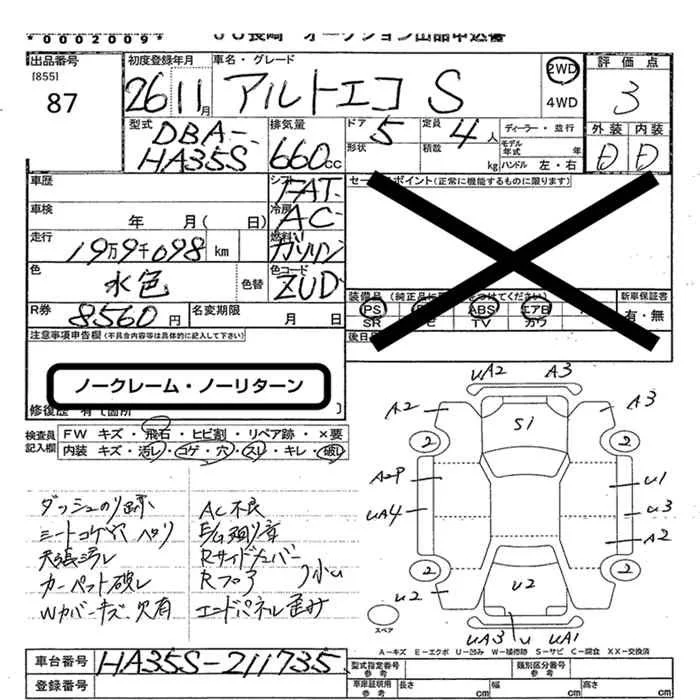 *0002009*
ＪＵ長崎 オークション出品申込書
出品番号
[855]
87
初度登録年月
26 11月
車名・グレード
アルトエコ S
2WD
4WD
評価点
3
外装 内装
D D
型式
DBA-
HA35S
排気量
660cc
ドア 5
形状
定員 4人
積載 kg
ディーラー・並行
モデル年式 年
ハンドル 左・右
車歴
シフト
FAT
車検
年 月( 日)
冷房
AC
走行
19万9千098 km
燃料
ガソリン
色
水色
色替
色コード
ZUD
R券
8560円
名変期限
月 日
セールスポイント(正常に機能するものに限ります)
装備品
PS ABS エアB
SR TV カワ
新車保証書
有・無
注意事項申告欄(不具合内容等は具体的に記入して下さい)
ノークレーム・ノーリターン
修復歴 有 [箇所 ]
検査員
記入欄
FW キズ・飛石・ヒビ割・リペア跡・×要
内装 キズ・汚レ・コゲ・穴・スレ・キレ・破レ
ダッシュのり跡
シートコゲ穴 ヘタリ
天張汚レ
カーペット破レ
Wカバーキズ 欠有
AC不良
E/G廻り音
Rサイドメンバー
Rフロア 小U
エンドパネル歪み
UA2 A3
A2 S1 A3
2 2
A2P U1
UA4 U3
A2
2 2
U2 U2
スペア
UA3 U UA1
A－キズ E－エクボ U－凹み W－補修跡 S－サビ C－腐食 XX－交換済
車台番号
HA35S-211735
登録番号
型式指定番号
参考
類別区分番号
参考
車庫証明用
参考
長さ cm
幅 cm
高さ cm